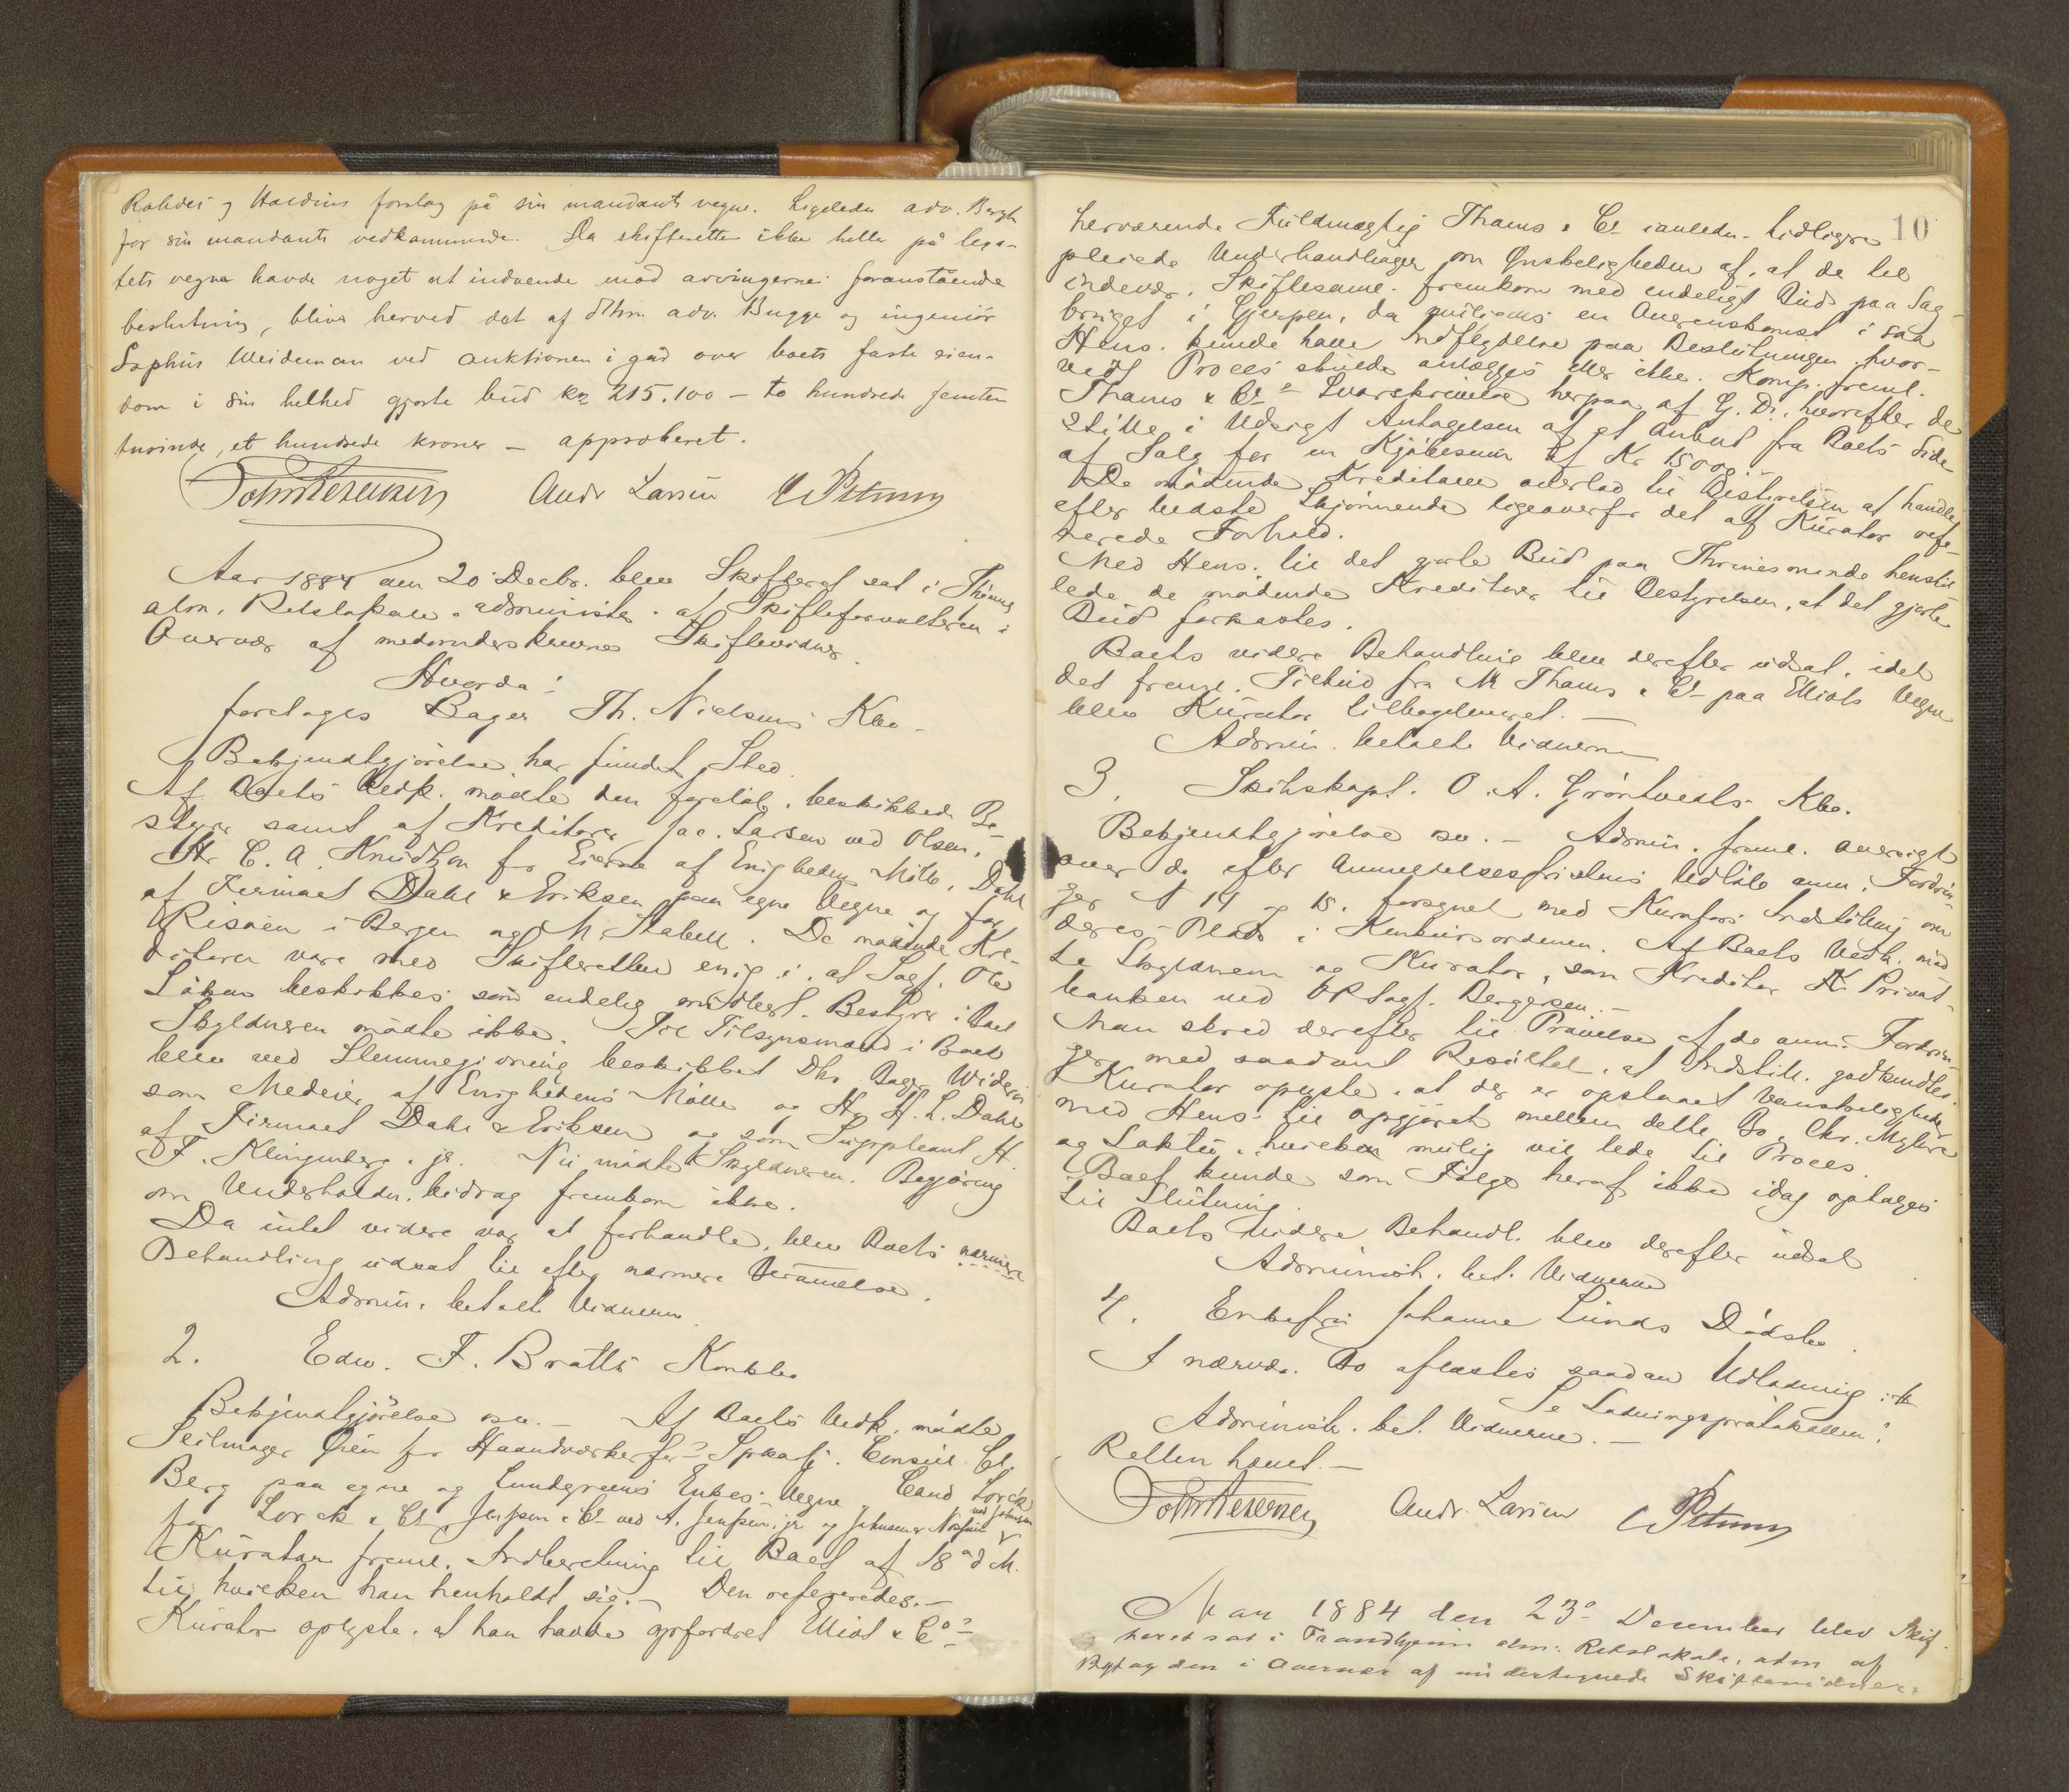 forslag på sin mandants vegne. Ligeledes adv. Bergh
for sin mandants vedkommende. Da skifteretten ikke heller på lega-
tets vegne havde noget at indvende mod arvingernes foranstående
beslutning, bliver herved det af dHrr. adv. Bugge og ingeniör
Sophus Weideman ved auktionen i går over boets faste eien-
dom i sin helhed gjorte bud kr. 215.100 - to hundrede femten
tusinde, et hundrede kroner - approberet.
Andr Larsen
Aar 1884 den 20 Decbr. blev Skifteret sat i Thjems
alm. Retslokale, administr. af Skifteforvalteren i
Overvær af medunderskrevne Skiftevidner.
Hvorda:
foretages Bager Th. Nielsens Kbo.
Bekjendtgjörelse har fundet Sted.
Af Boets Vedk. mödte den forelöb. beskikkede Be-
styrer samt af Kreditorer Jac. Larsen ved Olsen,
Hr C. A. Knudtzon for Eierne af Enighedens Mölle, Dahl
af Firmaet Dahl & Eriksen paa egne Vegne og for
Risöen i Bergen og M Stabell. De mödende Kre-
ditorer vare med Skifteretten enig i, at Sagf. Ole
Löken beskikkes som endelig Bestyrer i Boet
Skyldneren mödte ikke. Til Tilsynsmænd i Boet
blev ved Stemmegivning beskikket Dhr. Bager
som Medeier af Enighedens Mölle og Hr H. L. Dahl
af Firmaet Dahl & Eriksen og som Suppleant H.
F. Klingenberg. jr. Nu mödte Skyldneren. Begjæring
om Underholdn. bidrag fremkom ikke.
Da intet videre var at forhandle, blev Boets nærmere
Behandling udsat til efter nærmere Berammelse.
Admin. betalte Vidnerne
2. Edw. F. Bratts Konkbo
Bekjendtgjörelse osv. - Af Boets Vedk. mödte
Seilmager Öien for Haandværkerfor. Spkasse. Consul Cl.
Berg paa egne og Lundgreens Enkes Vegne, Cand Lorck
for Lorck & Co, Jenssen & Co ved A. Jenssen jr og Johnsen
Kurator freml. Indberetning til Boet af 18 d M.
til hvilken han henholdt sig. - Den refereredes. -
Kurator oplyste, at han havde opfordret Eliot & Co
10
herværende Fuldmægtig Thams & Co i anledn. tidligere
pleiede Underhandlinger om Önskeligheden af, at de til
indevær. Skiftesaml. fremkom med endeligt Bud paa Sag-
bruget i Gjerpen, da muligens en Overenskomst i saa
Hens. kunde have Indflydelse paa Beslutningen hvor-
vidt Proces skulde anlægges eller ikke. Komp. freml.
Thams & Co Svarskrivelse herpaa af G. D., hvorefter de
stille i Udsigt Antagelsen af et Anbud fra Boets Side
af Salg for en Kjöbesum af Kr 15000. -
De mödende Kreditorer overlod til Bestyrelsen at handle
efter bedste Skjönnende ligeoverfor det af Kurator refe-
rerede Forhold.
Med Hens. til det gjorte Bud paa henstil-
lede de mödende Kreditorer til Bestyrelsen, at det gjorte
Bud forkastes.
Boets videre Behandling blev derefter udsat, idet
det freml. Tilbud fra M Thams & Co paa Elliots Vegne
blev Kurator tilbageleveret. -
Admin. betalte Vidnerne
3. Skibskapt. O. A. Gröntvedts Kbo.
Bekjendtgjörelse osv. - Admin. freml. Oversigt
over de efter Anmeldelsesfristens Udlöb anm. Fordrin-
ger N 14 og 15. forsynet med Kurators Indstilling om
deres Plads i Konkursordenen. Af Boets Vedk. möd-
te Skyldneren og Kurator, som Kreditor N. Privat-
banken ved ORSagf. Bergersen. -
Man skred derefter til Prövelse af de anm. Fordrin-
ger med saadant Resultat, at Indstill. godkendtes.
Kurator oplyste, at der er opstaaet Vanskeligheder
med Hens. til Opgjöret mellem dette Bo, Chr. Mglire
og Laktü, hvilken mulig vil lede til Proces.
Boet kunde som Fölge heraf ikke idag optages
til Slutning.
Boets videre Behandl. blev derefter udsat
Administr. bet. Vidnerne
4. Enkefru Johanne Lunds Dödsbo
I nærvær. Bo aflæstes saadan Udlodning: #
Se Lodningsprotokollen!
Administr. bet. Vidnerne. -
Retten hævet. -
Andr. Larsen
Aar 1884 den 23 December blev Skif-
teret sat i Trondhjems alm. Retslokale, adm af
Byfogden i Overvær af undertegnede Skiftevidner.